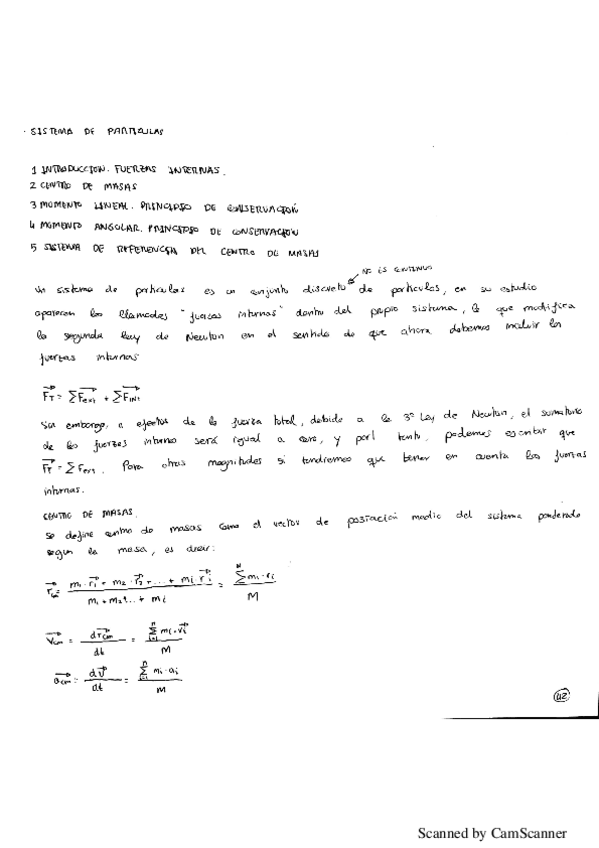 · SISTEMA DE PARTICULAS
1 INTRODUCCION. FUERZAS INTERNAS.
2 CENTRO DE MASAS
3 MOMENTO LINEAL. PRINCIPIO DE CONSERVACIÓN
4 MOMENTO ANGULAR. PRINCIPIO DE CONSERVACION
5 SISTEMA DE REFERENCIA DEL CENTRO DE MASAS
NO ES CONTINUO
Un sistema de particulas es un conjunto discreto de particulas, en su estudio
aparecen las llamadas "fuerzas internas" dentro del propio sistema, lo que modifica
la segunda ley de Newton en el sentido de que ahora debemos incluir las
fuerzas internas
F⃗T = ΣF⃗ext + ΣF⃗INT
Sin embargo, a efectos de la fuerza total, debido a la 3ª Ley de Newton, el sumatorio
de las fuerzas internas será igual a cero, y por tanto, podemos escribir que
F⃗T = ΣF⃗ext. Para otras magnitudes si tendremos que tener en cuenta las fuerzas
internas.
CENTRO DE MASAS.
se define centro de masas como el vector de posición medio del sistema ponderado
segun la masa, es decir:
r⃗ = (m₁·r⃗₁ + m₂·r⃗₂ + ... + mi r⃗i) / (m₁ + m₂ + ... + mi) = Σmi·ri / M
v⃗cm = dr⃗cm/dt = Σmi·v⃗i / M
a⃗cm = dv⃗/dt = Σmi·ai / M
42
Scanned by CamScanner